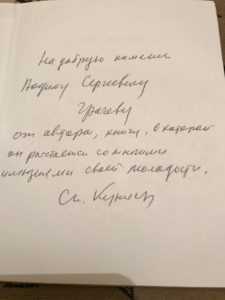 На добрую память
Вадиму Сергеевичу
Грачеву
от автора, книги, в которой
он расстался со многими
иллюзиями своей молодости.
Ст. Куняев